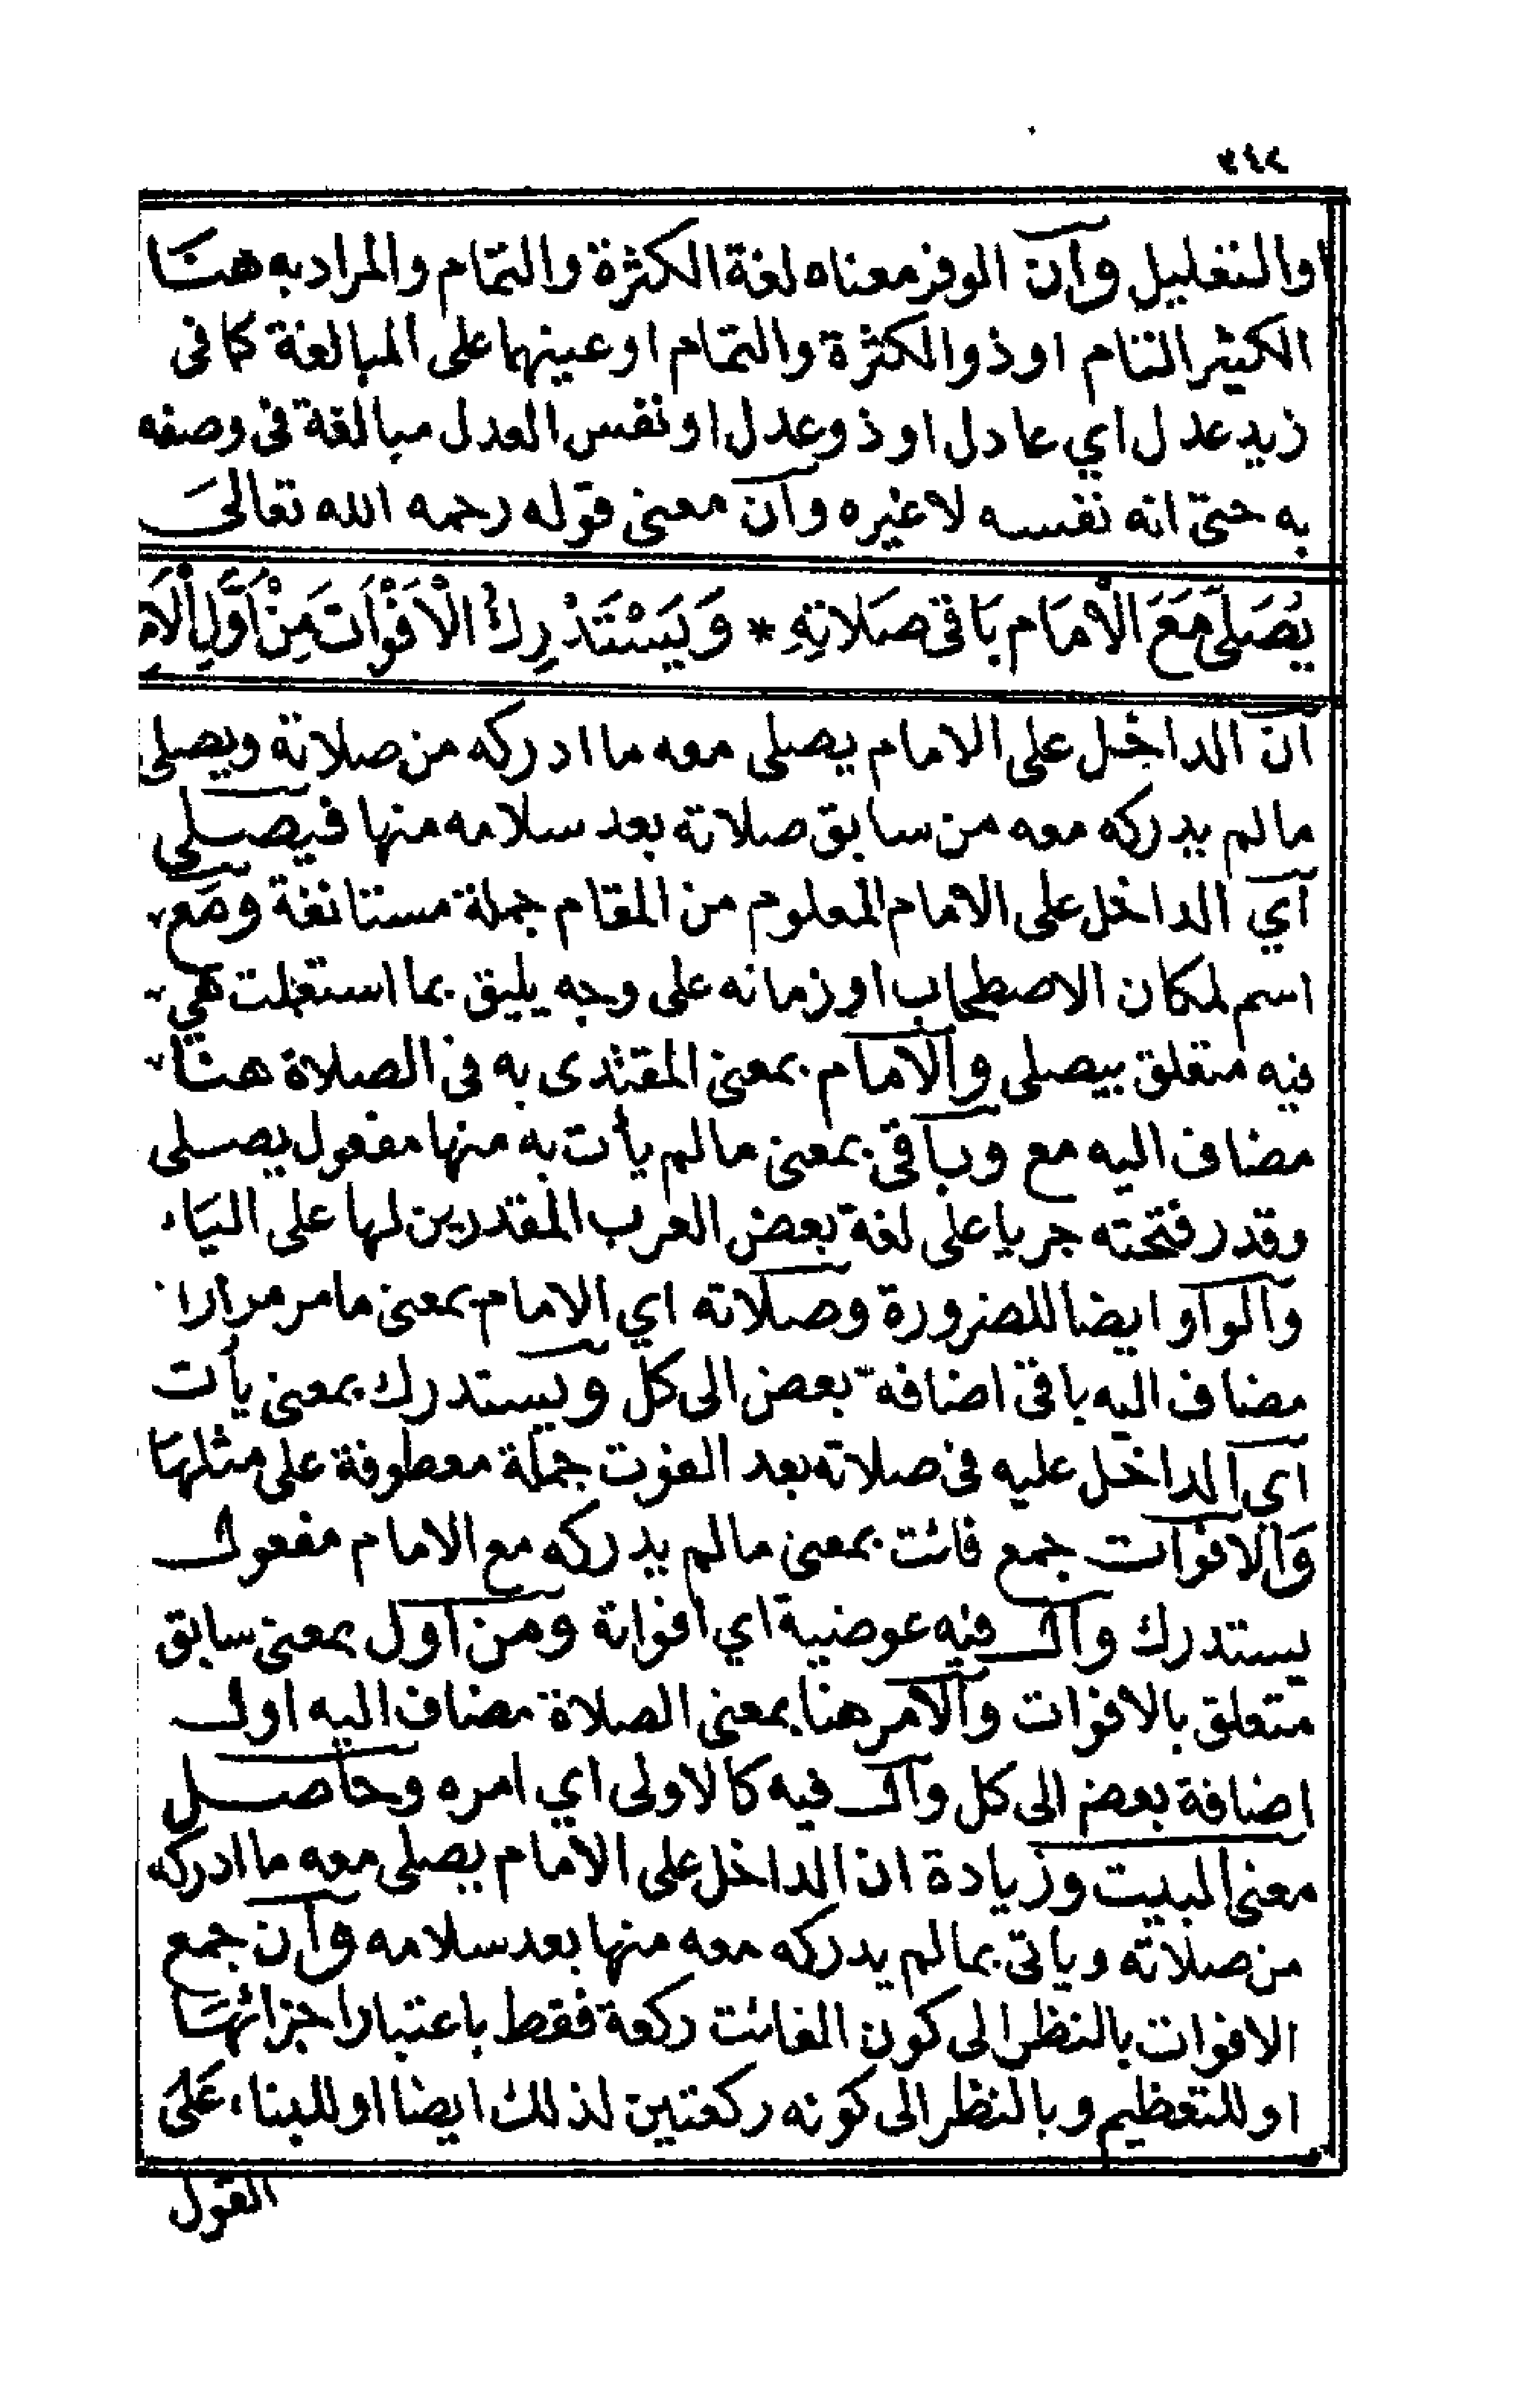 ٢٤٢
او التعليل وان الوفر معناه لغة الكثرة والتمام والمراد به هنا
الكثير التام اوذو الكثرة والتمام او عينهما على المبالغة كما فى
زيد عدل اي عادل اوذو عدل او نفس العدل مبالغة فى وصفه
به حتى انه نفسه لا غيره وان معنى قوله رحمه الله تعالىَ
يُصَلِّى مَعَ الْاِمَامِ بَاقِى صَلَاتِهِ * وَيَسْتَدْرِكُ الْاَفْوَاتَ مِنْ اَوَّلِ الْاَمْرِ
ان الداخل على الامام يصلى معه ما ادركه من صلاته ويصلى
ما لم يدركه معه من سابق صلاته بعد سلامه منها فيصلى
اي الداخل على الامام المعلوم من المقام جملة مستانفة ومع
اسم لمكان الاصطحاب او زمانه على وجه يليق بما استعملت هي
فيه متعلق بيصلى والامام بمعنى المقتدى به فى الصلاة هنا
مضاف اليه مع وباقى بمعنى ما لم يأت به منها مفعول يصلى
وقدر فتحته جريا على لغة بعض العرب المقدرين لها على الياء
والواو ايضا للضرورة وصلاته اي الامام بمعنى ما مر مرارا
مضاف اليه باقى اضافة بعض الى كل ويستدرك بمعنى يأت
اى الداخل عليه فى صلاته بعد الفوت جملة معطوفة على مثلها
وَالافوات جمع فائت بمعنى ما لم يدركه مع الامام مفعول
يستدرك وال فيه عوضية اي افواته ومن اول بمعنى سابق
متعلق بالافوات والامر هنا بمعنى الصلاة مضاف اليه اول
اضافة بعض الى كل وال فيه كالاولى اي امره وحاصل
معنى البيت وزيادة ان الداخل على الامام يصلى معه ما ادركه
من صلاته وياتى بما لم يدركه معه منها بعد سلامه وان جمع
الافوات بالنظر الى كون الفائت ركعة فقط باعتبار اجزائها
او للتعظيم وبالنظر الى كونه ركعتين لذلك ايضا او للبناء على
القول